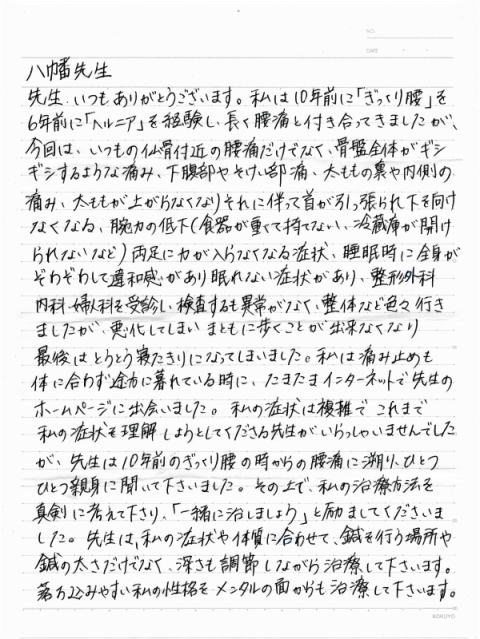 NO.
DATE
八幡先生
先生、いつもありがとうございます。私は10年前に「ぎっくり腰」を
6年前に「ヘルニア」を経験し、長く腰痛と付き合ってきましたが、
今回は、いつもの仙骨付近の腰痛だけでなく、骨盤全体がギシ
ギシするような痛み、下腹部やそけい部痛、太ももの裏や内側の
痛み、太ももが上がらなくなりそれに伴って首が引っ張られ下を向け
なくなる、腕力の低下(食器が重くて持てない、冷蔵庫が開け
られないなど)両足に力が入らなくなる症状、睡眠時に全身が
ぞわぞわして違和感があり眠れない症状があり、整形外科
内科、婦人科を受診し、検査するも異常がなく、整体など色々行き
ましたが、悪化してしまい まともに歩くことが出来なくなり
最後はとうとう寝たきりになってしまいました。私は痛み止めも
体に合わず途方に暮れている時に、たまたまインターネットで先生の
ホームページに出会いました。私の症状は複雑で これまで
私の症状を理解しようとしてくださる先生がいらっしゃいませんでした
が、先生は10年前のぎっくり腰の時からの腰痛に溯り、ひとつ
ひとつ親身に聞いて下さいました。その上で、私の治療方法を
真剣に考えて下さり、「一緒に治しましょう」と励ましてくださいま
した。先生は、私の症状や体質に合わせて、鍼を行う場所や
鍼の太さだけでなく、深さも調節しながら治療して下さいます。
落ち込みやすい私の性格をメンタルの面からも治療して下さいます。
KOKUYO